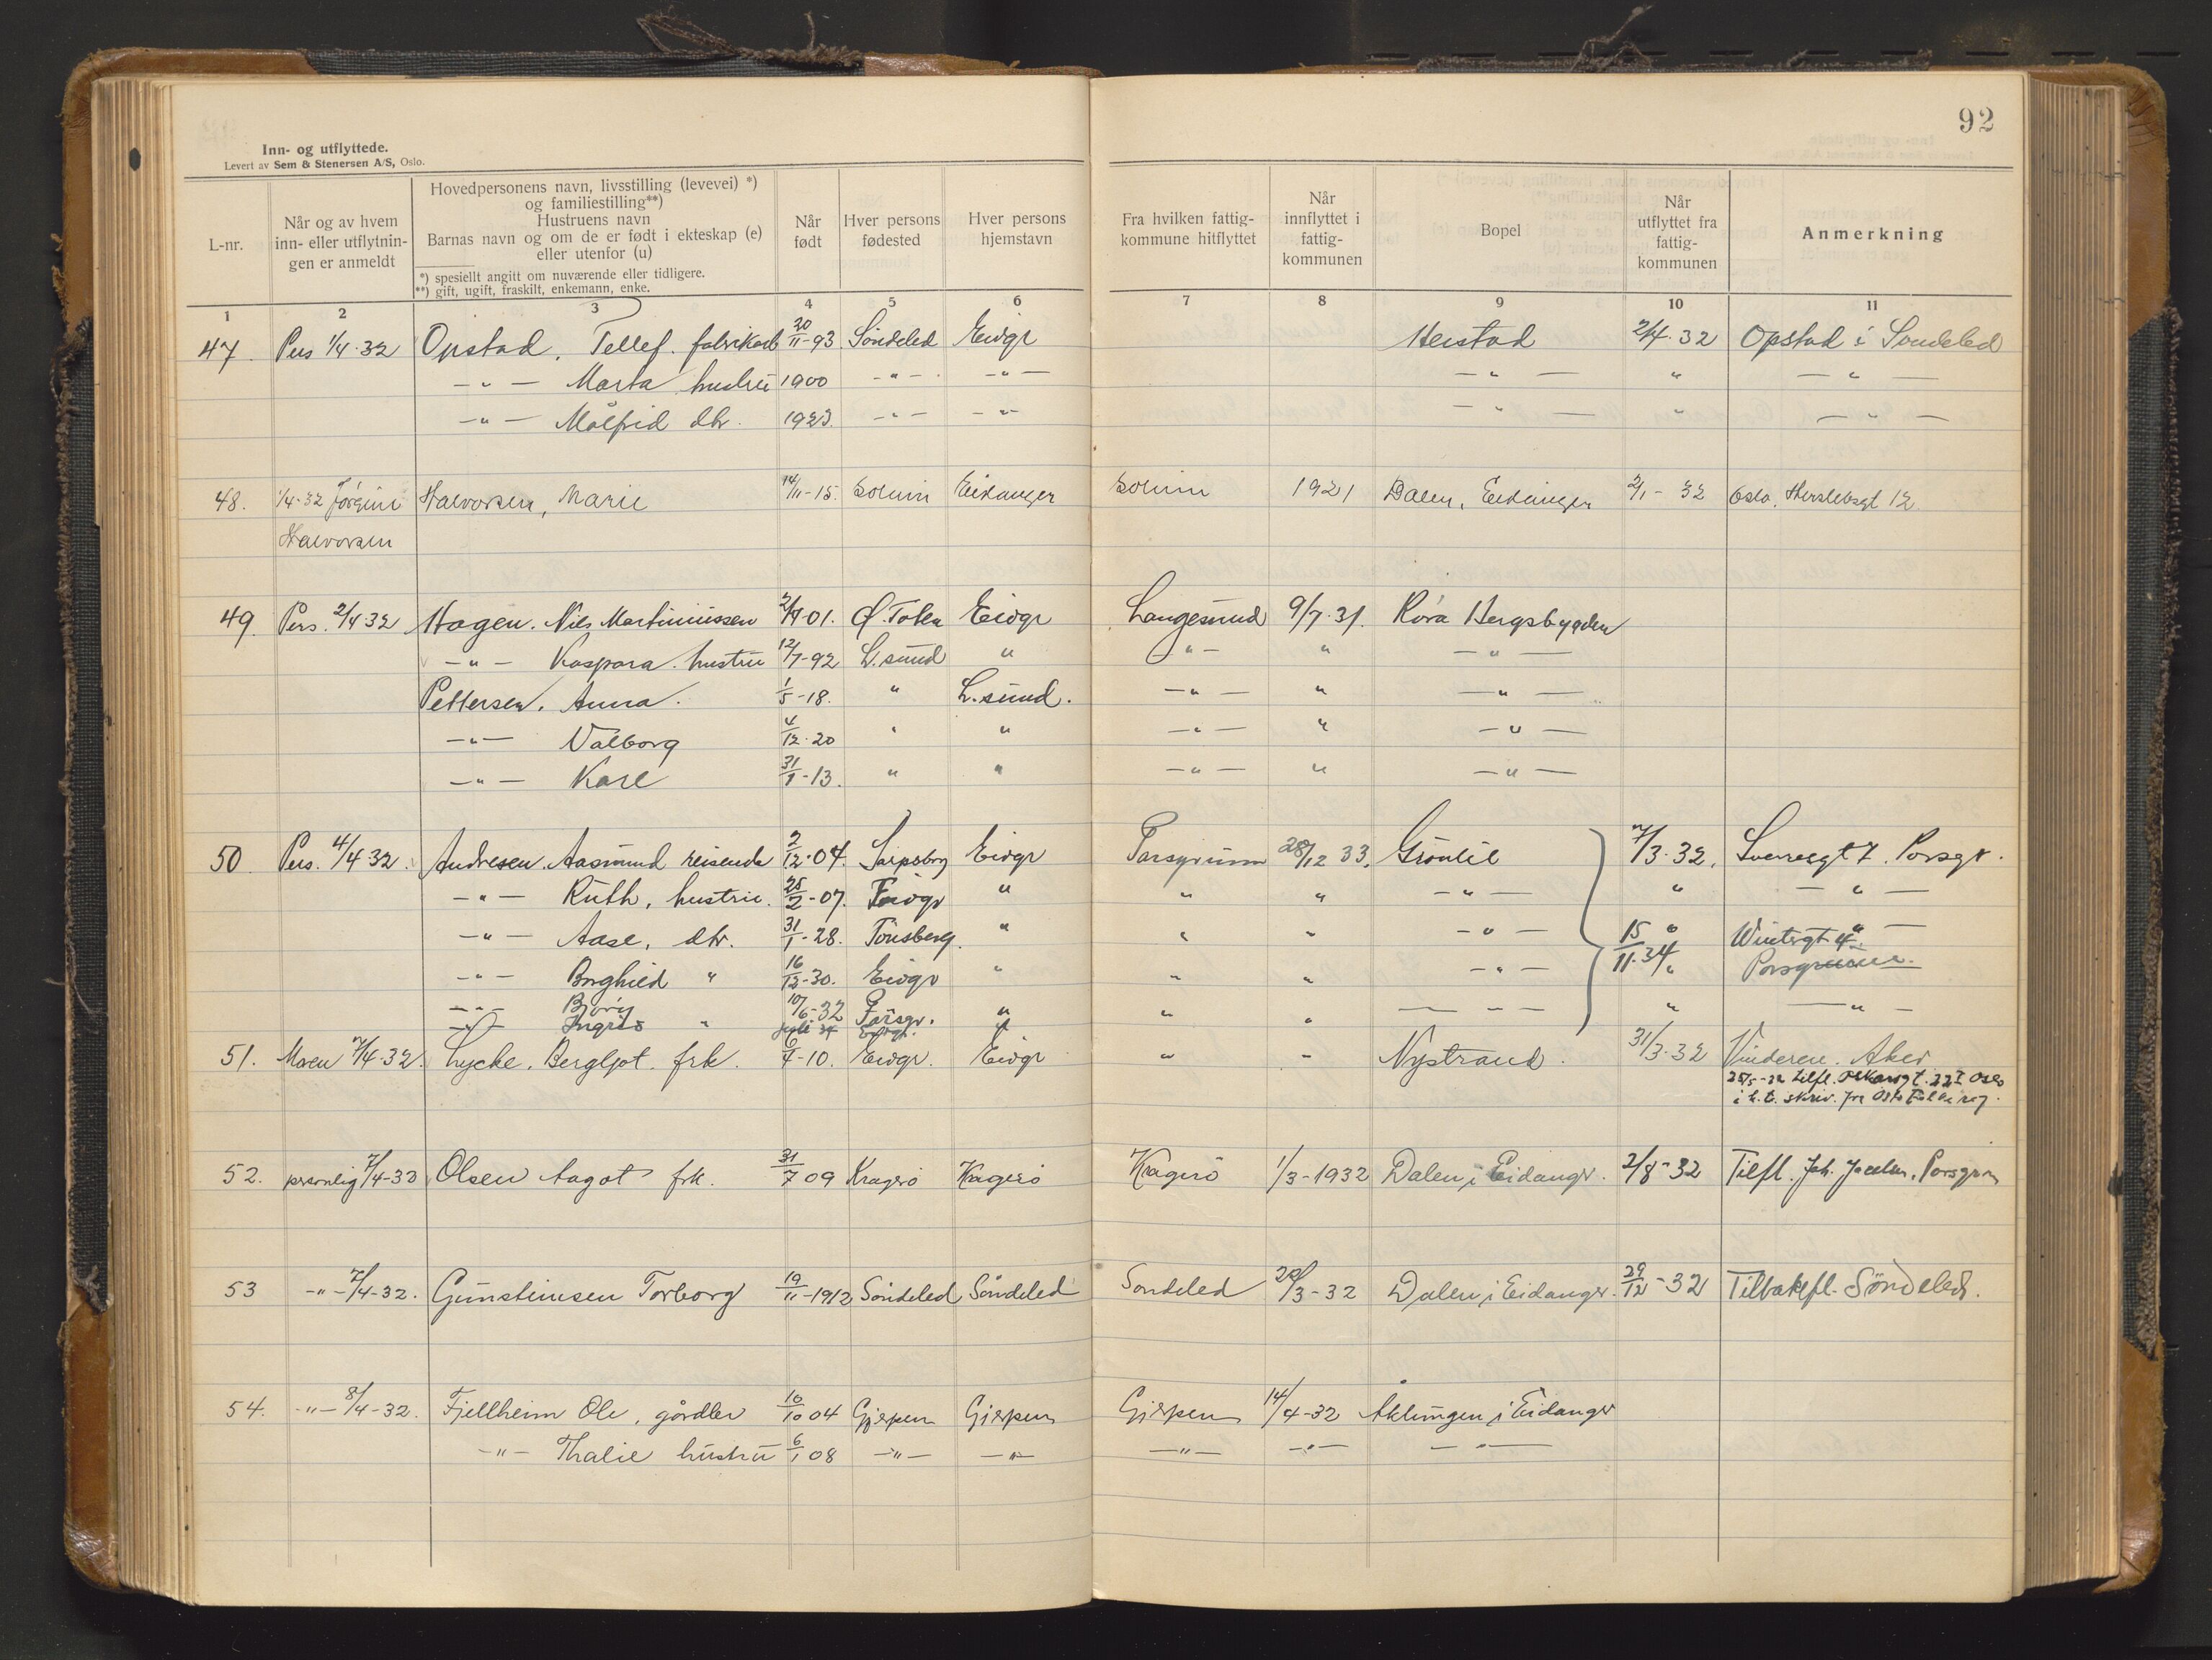 92
Inn- og utflyttede.
Levert av Sem & Stenersen A/S, Oslo.
L-nr.
Når og av hvem
inn- eller utflytnin-
gen er anmeldt
Hovedpersonens navn, livsstilling (levevei) *)
og familiestilling**)
Hustruens navn
Barnas navn og om de er født i ekteskap (e)
eller utenfor (u)
*) spesiellt angitt om nuværende eller tidligere.
**) gift, ugift, fraskilt, enkemann, enke.
Når
født
Hver persons
fødested
Hver persons
hjemstavn
Fra hvilken fattig-
kommune hitflyttet
Når
innflyttet i
fattig-
kommunen
Bopel
Når
utflyttet fra
fattig-
kommunen
Anmerkning
1 2 3 4 5 6 7 8 9 10 11
47. Pers 1/4-32 Opstad, Tellef. fabrikarb 20/11-93 Söndeled Eidgr Herstad 2/4-32 Opstad i Söndeled
-"- Marta hustru 1900 -"- -"- -"- " -"-
-"- Målfrid dtr. 1923. -"- -"- -"- " -"-
48. 1/4-32 Jörgine Halvorsen, Marie 14/11-15. Solum Eidanger Solum 1921 Dalen, Eidanger 2/1-32 Oslo. Herslebsgt 12
Halvorsen
49. Pers. 2/4-32 Hagen. Nils Martiniussen 2/4-01. Ø. Toten Eidgr Langesund 9/7-31. Röra Bergsbygden
-"- Kaspara. hustru 12/7-92 L.sund " -"- " -"-
Pettersen, Anna. 1/5-18. " L.sund. -"- " -"-
-"- Valborg 4/12-20 " " -"- " -"-
-"- Karl 31/1-13. " " -"- " -"-
50. Pers. 4/4-32. Andresen. Aasmund reisende 2/12-04. Sarpsborg Eidgr Porsgrunn 28/12 33. Grönlie 7/3-32. Sverresgt 7. Porsgr.
-"- Ruth, hustru. 25/2-07. Eidgr " " " -"- " -"-
-"- Aase, dtr. 31/1-28. Tönsberg. " " " -"- 15 " Wintergt 4. " -
-"- Borghild " 16/12-30. Eidgr " " " -"- 11-34 " Porsgrunn.
-"- Björg 10/6-32 Porsgr. " " " - - - " -"-
-"- Ingrid " Juli 34 Eidgr. "
51. Moren 7/4-32. Lycke, Bergljot. frk. 6/4-10. Eidgr. Eidgr " " Nystrand. 31/3-32 Vinderen. Aker
25/5-32 tilfl. 22 I Oslo
i h. t. skriv. fra Oslo Folkereg.
52. personlig 7/4-32 Olsen Aagot frk. 31/7 09 Kragerö Kragerö Kragerö 1/3-1932 Dalen i Eidangr. 2/8-32 Tilfl. Joh. Porsgrunn
53 -"- 7/4-32. Gunsteinsen Torborg 19/11-1912 Söndeled Söndeled Söndeled 20/3-32 Dalen i Eidanger. 29/12-32 Tilbakefl. Söndeled.
54. -"- 8/4-32. Fjellheim Ole, gårdbr 10/10 04 Gjerpen Gjerpen Gjerpen 14/4-32 Åklungen i Eidanger
-"- Thalie hustru 6/1 08 -"- -"- -"- -"- -"-